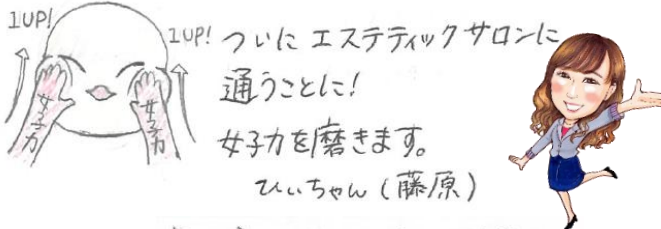 1UP!
1UP!
女子力
女子力
ついにエステティックサロンに
通うことに!
女子力を磨きます。
ひぃちゃん(藤原)